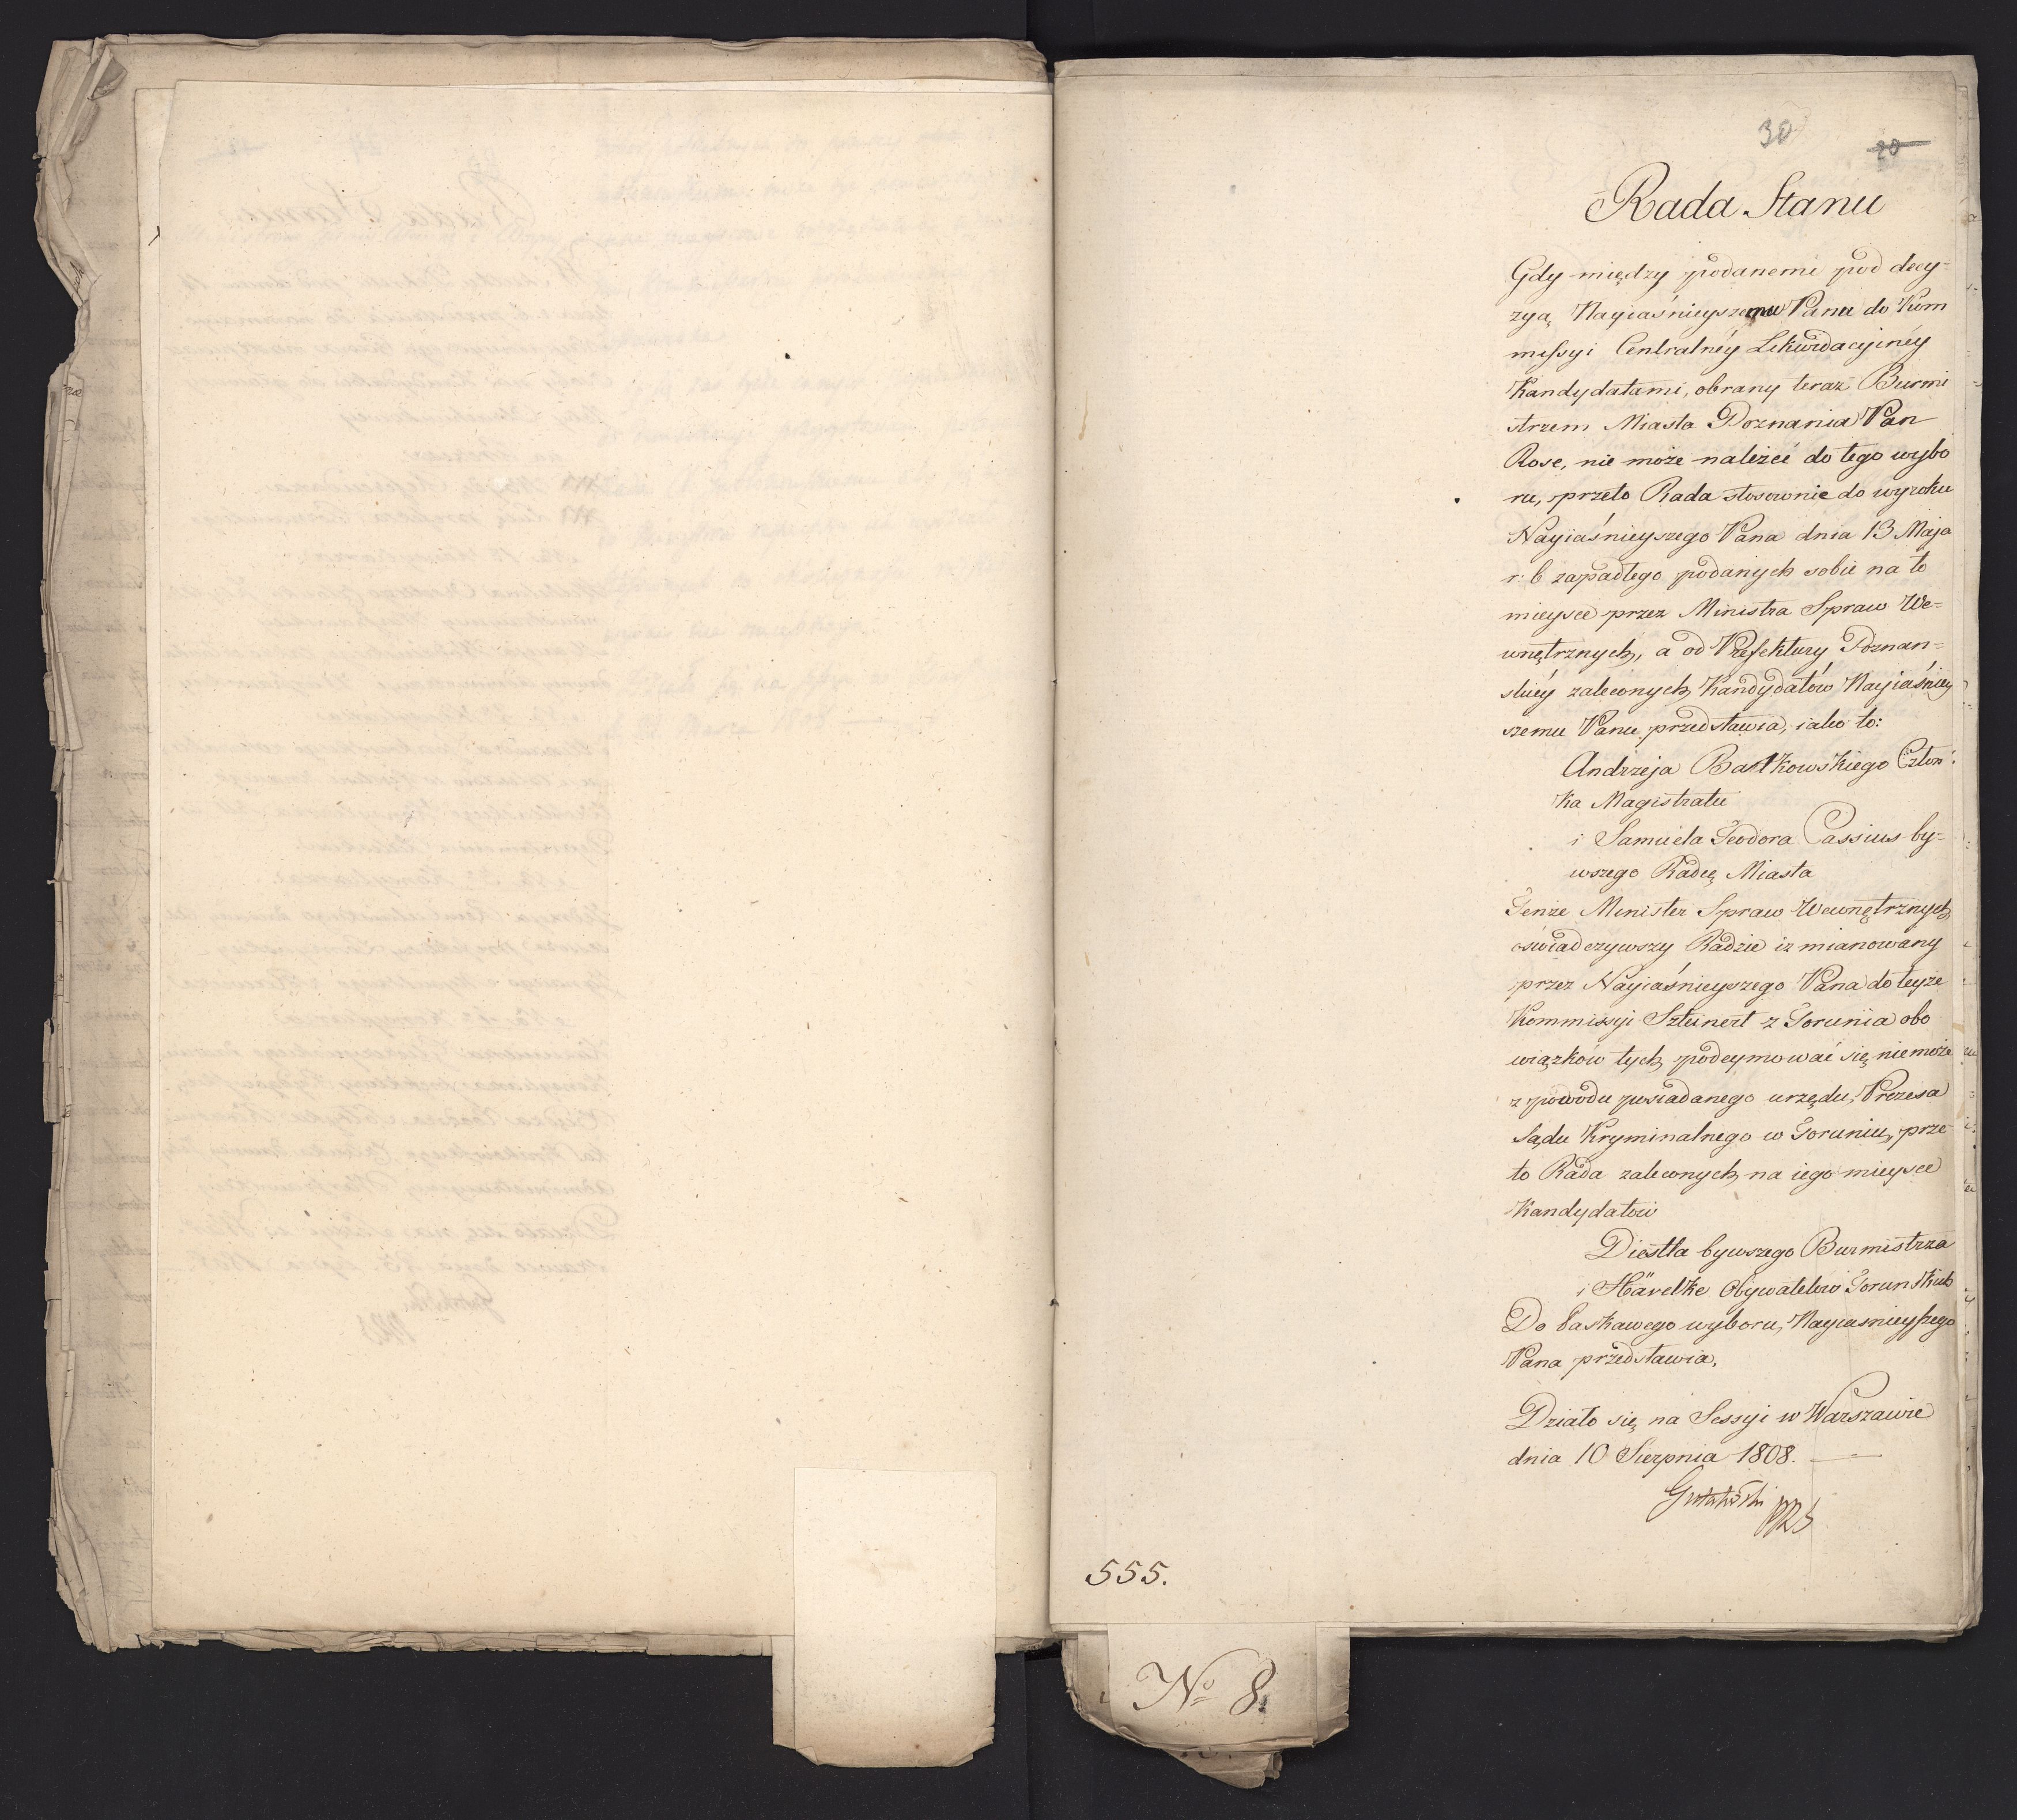 30
20
Rada Stanu
Gdy między podanemi pod decy-
zyą Nayiaśnieyszemu Panu do Kom
missyi Centralnéy Likwidacyinéy
Kandydatami, obrany teraz Burmi
strzem Miasta Poznania Pan
Rose, nie może należeć do tego wybo
ru, przeto Rada stosownie do wyroku
Nayiaśnieyszego Pana dnia 13 Maja
r: b zapadłego podanych sobie na to
mieysce przez Ministra Spraw We=
wnętrznych, a od Prefektury Poznan=
skiéy zaleconych Kandydatów Nayiaśniey
szemu Panu przedstawia, iako to:
Andrzeja Bartkowskiego Człon
ka Magistratu
i Samuela Teodora Cassius by=
wszego Radcę Miasta
Tenże Minister Spraw Wewnętrznych
oświadczywszy Radzie iz mianowany
przez Nayiaśnieyszego Pana do teyże
Kommissyi Szteinert z Torunia obo
wiązków tych podeymować się niemoże
z powodu posiadanego urzędu, Prezesa
Sądu Kryminalnego w Toruniu, prze
to Rada zaleconych na iego mieysce
Kandydatow
Diestla bywszego Burmistrza
i Härelke Obywatelow Torunskich
Do łaskawego wyboru, Nayiasnieyszego
Pana przedstawia.
Działo się na Sessyi w Warszawie
dnia 10 Sierpnia 1808.
Gutakowski
PRS
555.
No 8.